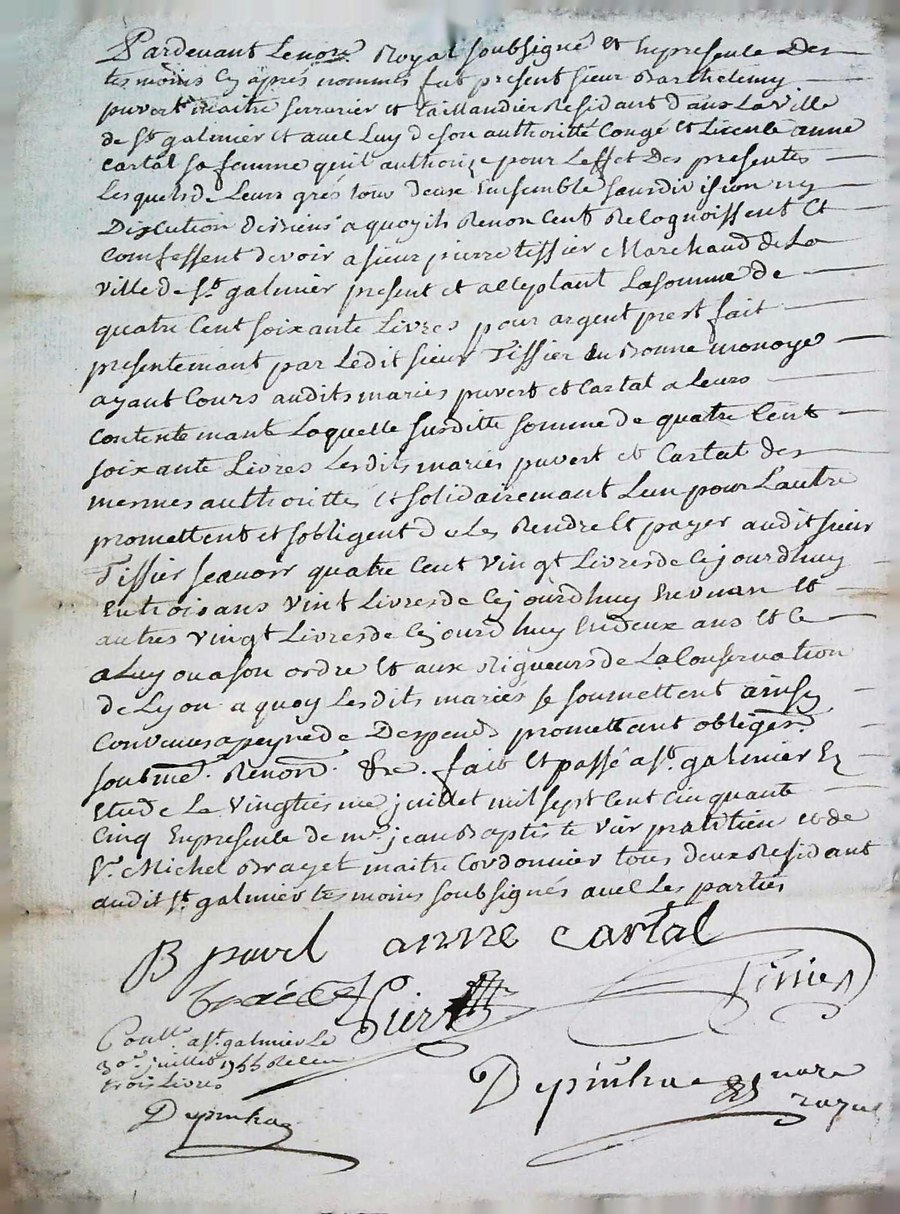 Pardevant Lenore Royal soubsigné et En presence Des
temoins Cy aprés nommés fut present sieur Barthelemy
puvert maitre serrurier et taillandier Residant dans La ville
de St galmier et avec Luy de son authoritté Congé et Licence anne
Cartal sa femme qu'il authorize pour L'effet Des presentes
Lesquels de Leurs grés tous deux Ensemble sans division ny
Discution de Biens a quoy ils Renoncent Recognoissent et
Comfessent devoir a sieur pierre tissier Marchand de La
ville de St galmier present et acceptant La somme de
quatre Cent soixante Livres pour argent prest fait
presentemant par Ledit sieur Tissier En Bonne monoye
ayant Cours audits mariés puvert et Cartal a Leurs
Contentemant Laquelle susditte somme de quatre Cent
soixante Livres Lesdits mariés puvert et Cartal des
mesmes authorittés et solidairemant L'un pour L'autre
promettent et sobligent de Les Rendre Et payer audit sieur
Tissier scavoir quatre Cent vingt Livres de Cejourdhuy
En trois ans vint Livres de Cejourdhuy En un an Et
autres vingt Livres de Cejourdhuy En deux ans Et Ce
a Luy ou a son ordre Et aux Rigueurs de La Conservation
de Lyon a quoy Lesdits mariés se soumettent ainsy
Convenus a peyne de Despends promettant obligeant
soubme. Renon. &c. fait Et passé a St galmier En
Etude Le vingtiesme juillet mil sept Cent Cinquante
Cinq En presence de mre jean Baptiste vier pratitien et de
Sr Michel Brayet maitre Cordonnier tous deux Residant
audit St galmier temoins soubsignés avec Les parties
B puvert anne Cartal
Vier Tissier
Conlle a St galmier Le
30e juillet 1755 Receu
trois Livres
Depinhac nore
royal
Depinhac